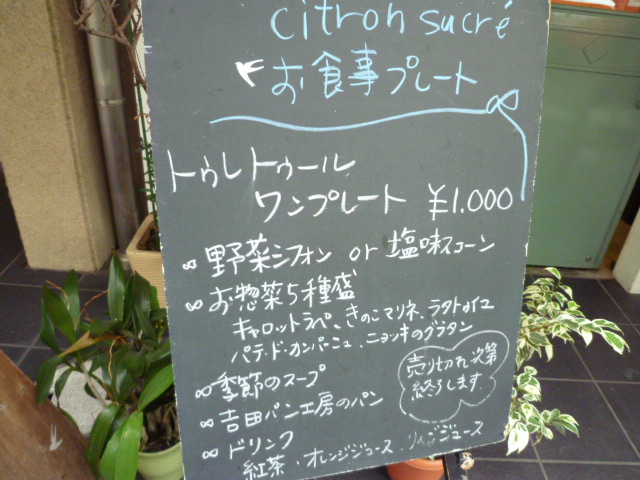 citron sucré
お食事プレート
トゥレトゥール
ワンプレート ¥1.000
∞野菜シフォン or 塩味スコーン
∞お惣菜5種盛
キャロットラペ、きのこマリネ、ラタトゥイユ
パテ・ド・カンパーニュ、ニョッキのグラタン
∞季節のスープ
∞吉田パン工房のパン
∞ドリンク
紅茶・オレンジジュース・りんごジュース
売り切れ次第
終了します。